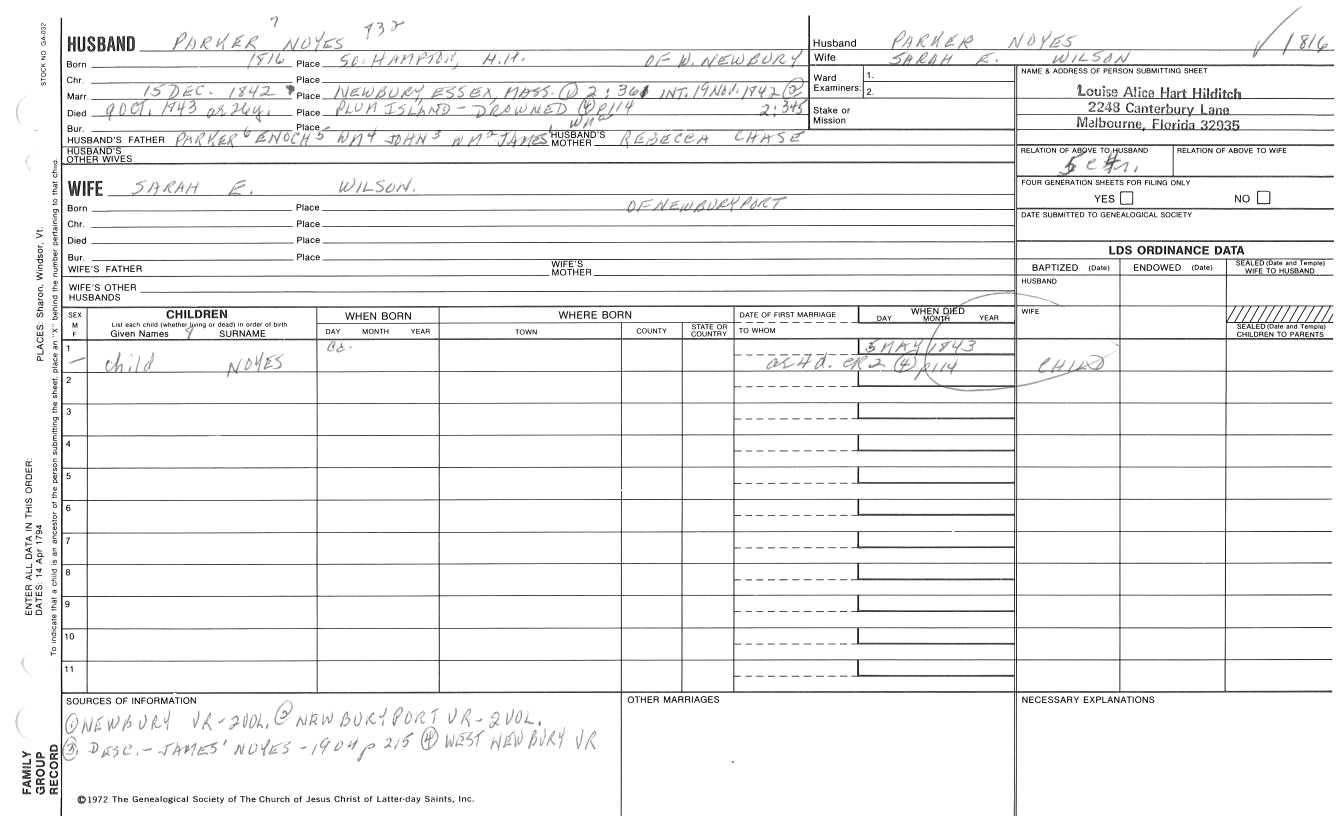 7 732
STOCK NO. GA-032
HUSBAND PARKER NOYES
Born 1816 Place SO. HAMPTON, N.H. OF W. NEWBURY
Chr. Place
Marr 15 DEC. 1842 Place NEWBURY, ESSEX, MASS. ① 2:361 INT. 19 NOV. 1842 ②
Died 9 OCT. 1843 ae 26y. Place PLUM ISLAND - DROWNED ④ p114 2:345
Bur. Place
HUSBAND'S FATHER PARKER 6 ENOCH 5 WM 4 JOHN 3 WM 2 JAMES 1 WM a HUSBAND'S MOTHER REBECCA CHASE
HUSBAND'S OTHER WIVES
WIFE SARAH E. WILSON.
Born Place OF NEWBURYPORT
Chr. Place
Died Place
Bur. Place
WIFE'S FATHER WIFE'S MOTHER
WIFE'S OTHER HUSBANDS
Husband PARKER NOYES
Wife SARAH E. WILSON
1816
Ward Examiners: 1.
2.
Stake or Mission
NAME & ADDRESS OF PERSON SUBMITTING SHEET
Louise Alice Hart Hilditch
2248 Canterbury Lane
Melbourne, Florida 32935
RELATION OF ABOVE TO HUSBAND RELATION OF ABOVE TO WIFE
FOUR GENERATION SHEETS FOR FILING ONLY
YES NO
DATE SUBMITTED TO GENEALOGICAL SOCIETY
LDS ORDINANCE DATA
BAPTIZED (Date) ENDOWED (Date) SEALED (Date and Temple) WIFE TO HUSBAND
HUSBAND
WIFE
SEALED (Date and Temple) CHILDREN TO PARENTS
SEX M F
CHILDREN
List each child (whether living or dead) in order of birth
Given Names SURNAME
WHEN BORN
DAY MONTH YEAR
WHERE BORN
TOWN COUNTY STATE OR COUNTRY
DATE OF FIRST MARRIAGE
TO WHOM
WHEN DIED
DAY MONTH YEAR
1 child NOYES 5 MAY 1843
ae 4 d. CR 2 ④ p114 CHILD
2
3
4
5
6
7
8
9
10
11
SOURCES OF INFORMATION
① NEWBURY VR - 2 VOL. ② NEWBURYPORT VR - 2 VOL.
③. DESC. - JAMES' NOYES - 1904 p 215 ④ WEST NEWBURY VR
OTHER MARRIAGES
NECESSARY EXPLANATIONS
©1972 The Genealogical Society of The Church of Jesus Christ of Latter-day Saints, Inc.
ENTER ALL DATA IN THIS ORDER:
DATES: 14 Apr 1794
PLACES: Sharon, Windsor, Vt.
To indicate that a child is an ancestor of the person submitting the sheet, place an "X" behind the number pertaining to that child.
FAMILY
GROUP
RECORD